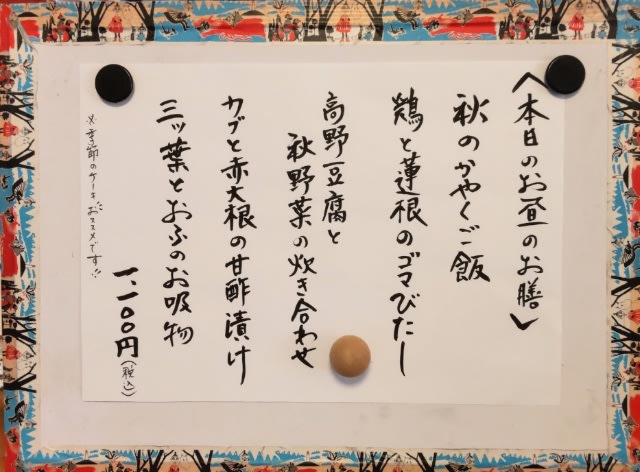 〈本日のお昼のお膳〉
秋のかやくご飯
鶏と蓮根のゴマびたし
高野豆腐と
秋野菜の炊き合わせ
カブと赤大根の甘酢漬け
三ッ葉とおふのお吸物
一、一〇〇円(税込)
※季節のケーキもおススメです!!